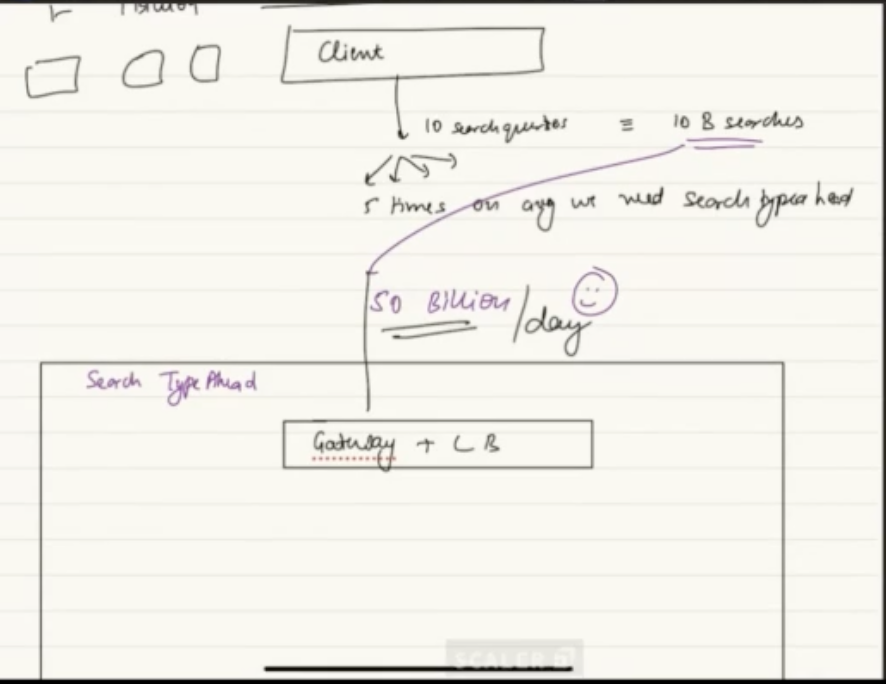 Client
10 search queries ≡ 10 B searches
5 times on avg we need search typeahead
50 Billion /day
Search TypeAhead
Gateway + LB
SCALER